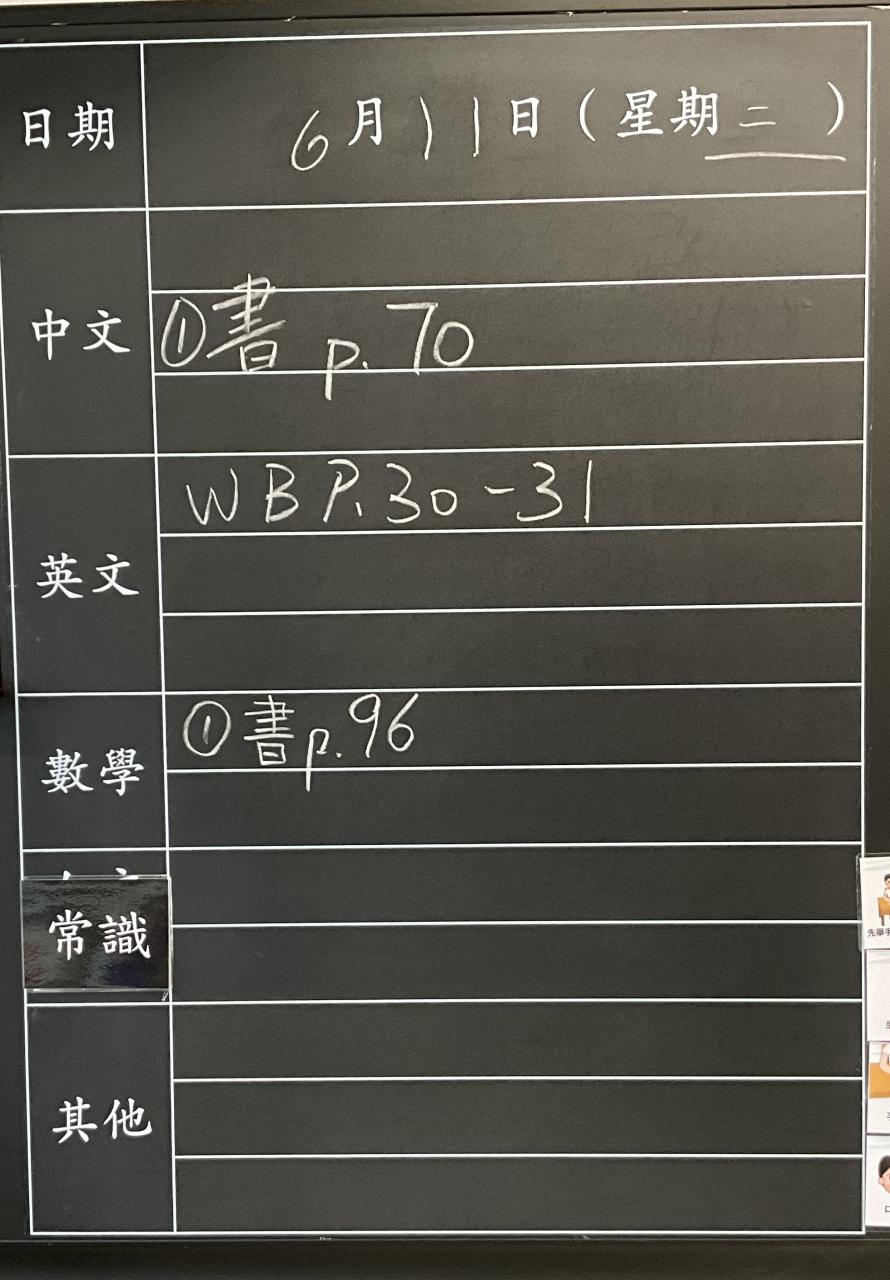 日期 6月11日（星期二）
中文 ①書 p.70
英文 WB P.30-31
數學 ①書p.96
常識
其他
先舉手